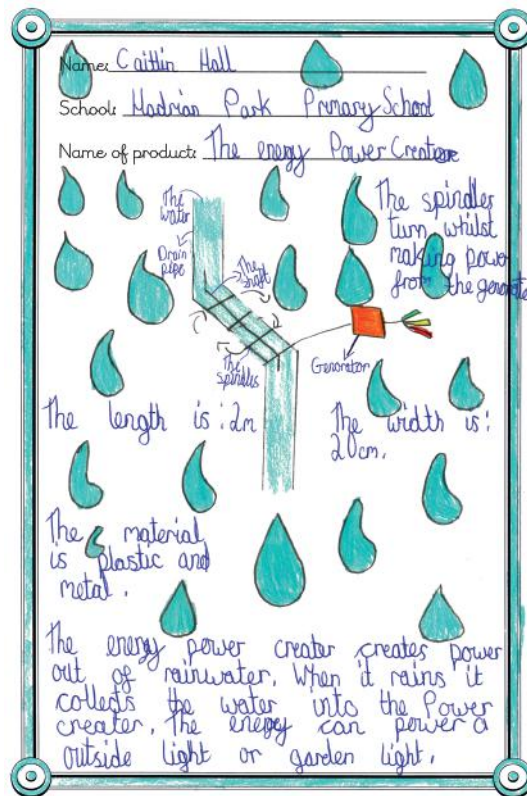 Name: Caitlin Hall
School: Hadrian Park Primary School
Name of product: The energy Power Creator
The
water
Drain
pipe
The
shaft
The spindles
turn whilst
making power
from the generator
The
spindles
Generator
The length is : 2m
The width is :
20cm.
The material
is plastic and
metal.
The energy power creater creates power
out of rainwater. When it rains it
collects the water into the Power
creater. The energy can power a
outside light or garden light.